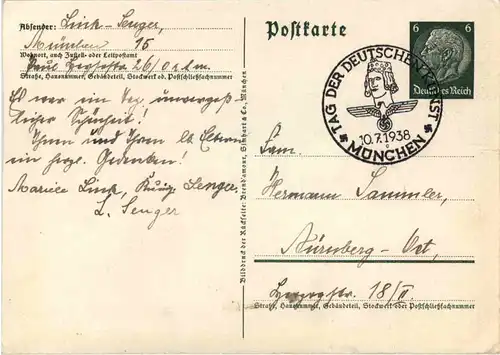 Absender: Link - Senger,
München 15
Wohnort, auch Zustell- oder Leitpostamt
Paul Heysestr. 26/0 r. d. m.
Straße, Hausnummer, Gebäudeteil, Stockwerk od. Postschließfachnummer
Es war ein Tag unvergeß-
licher Schönheit!
Ihnen und Ihren lb. Eltern
ein herzl. Gedenken!
Link, Senger
L. Senger
Bilddruck der Rückseite: Brend'amour, Simhart & Co., München
Postkarte
6 6
Deutsches Reich
TAG DER DEUTSCHEN KUNST
10.7.1938
MÜNCHEN
Fam.
Hermann Sammler,
Nürnberg - Ost,
18/II
Straße, Hausnummer, Gebäudeteil, Stockwerk oder Postschließfachnummer